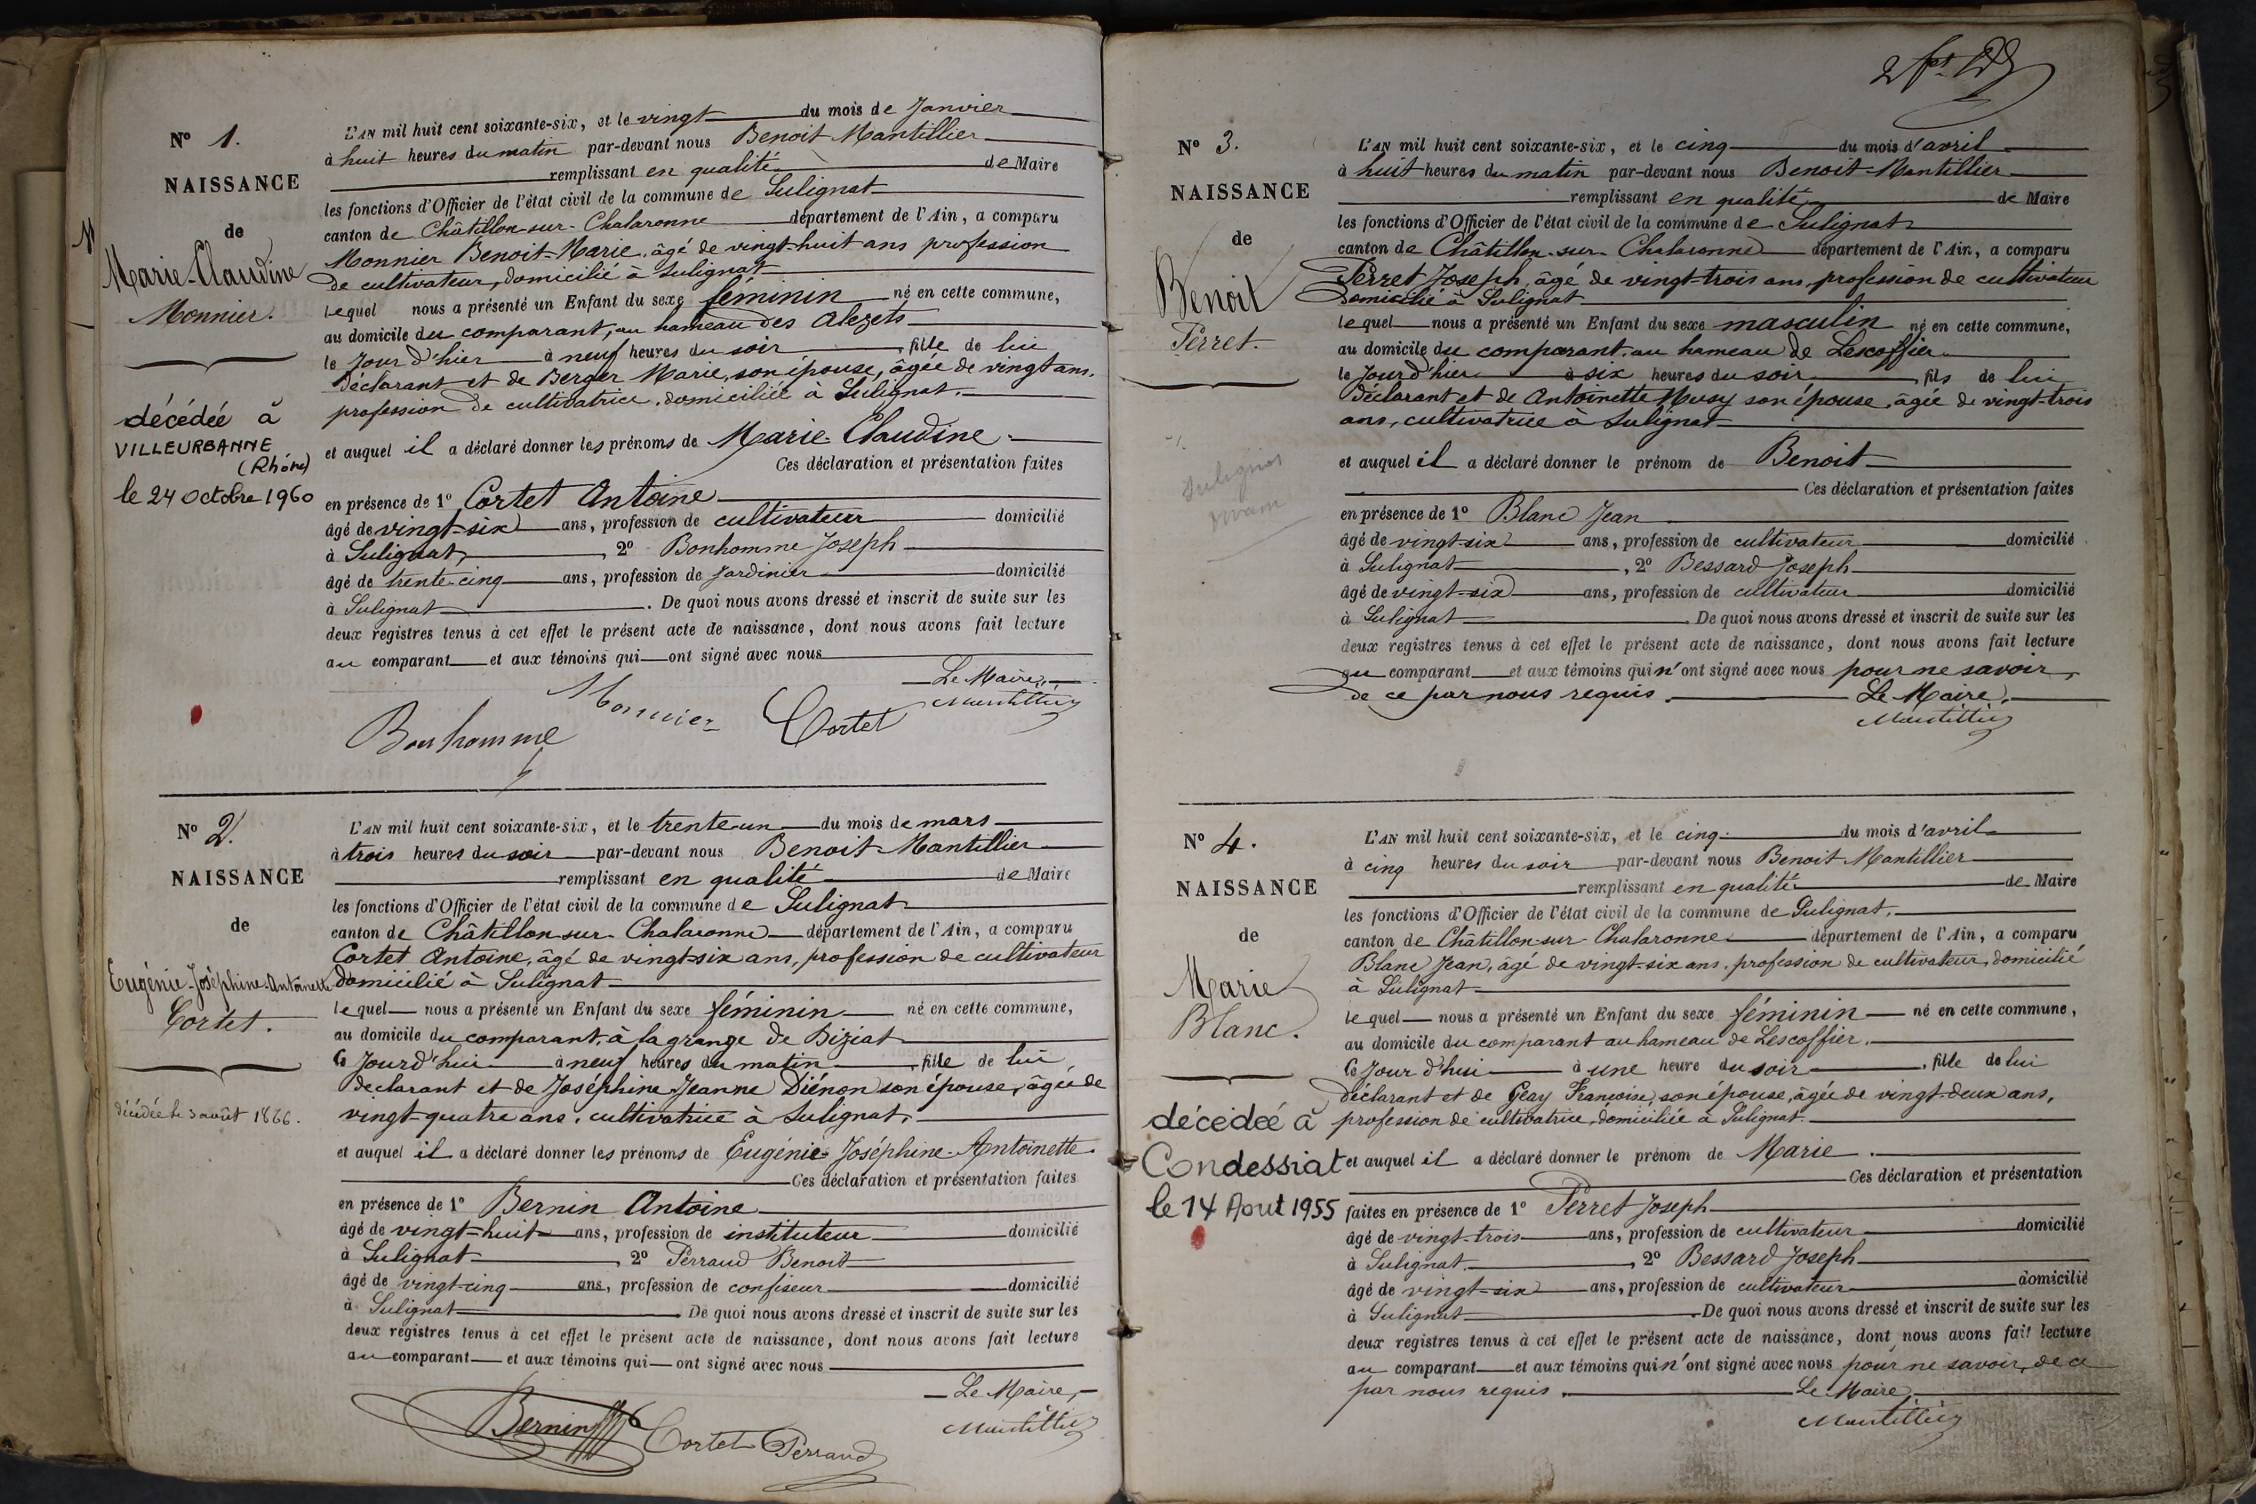 N° 1.
NAISSANCE
de
Marie-Claudine
Monnier.
décédée à
VILLEURBANNE
(Rhône)
le 24 octobre 1960
L'AN mil huit cent soixante-six, et le vingt du mois de Janvier
à huit heures du matin par-devant nous Benoit Mantillier
remplissant en qualité de Maire
les fonctions d'Officier de l'état civil de la commune de Sulignat
canton de Châtillon-sur-Chalaronne département de l'Ain, a comparu
Monnier Benoit-Marie, âgé de vingt-huit ans profession
de cultivateur, domicilié à Sulignat
lequel nous a présenté un Enfant du sexe féminin né en cette commune,
au domicile du comparant, au hameau des Alezets
le jour d'hier à neuf heures du soir, fille de lui
déclarant et de Berger Marie, son épouse, âgée de vingt ans,
profession de cultivatrice, domiciliée à Sulignat.
et auquel il a déclaré donner les prénoms de Marie-Claudine.
Ces déclaration et présentation faites
en présence de 1° Cortet Antoine
âgé de vingt-six ans, profession de cultivateur domicilié
à Sulignat, 2° Bonhomme Joseph
âgé de trente-cinq ans, profession de Jardinier domicilié
à Sulignat. De quoi nous avons dressé et inscrit de suite sur les
deux registres tenus à cet effet le présent acte de naissance, dont nous avons fait lecture
au comparant et aux témoins qui ont signé avec nous
Le Maire,
Monnier Cortet Mantillier
Bonhomme
N° 2.
NAISSANCE
de
Eugénie-Joséphine-Antoinette
Cortet.
décédée le 3 août 1866.
L'AN mil huit cent soixante-six, et le trente-un du mois de mars
à trois heures du soir par-devant nous Benoit Mantillier
remplissant en qualité de Maire
les fonctions d'Officier de l'état civil de la commune de Sulignat
canton de Châtillon-sur-Chalaronne département de l'Ain, a comparu
Cortet Antoine, âgé de vingt-six ans, profession de cultivateur
domicilié à Sulignat
lequel nous a présenté un Enfant du sexe féminin né en cette commune,
au domicile du comparant, à la grange de Biziat
ce Jourd'hui à neuf heures du matin, fille de lui
déclarant et de Joséphine Jeanne Diénon son épouse, âgée de
vingt-quatre ans, cultivatrice à Sulignat.
et auquel il a déclaré donner les prénoms de Eugénie-Joséphine-Antoinette.
Ces déclaration et présentation faites
en présence de 1° Bernin Antoine
âgé de vingt-huit ans, profession de instituteur domicilié
à Sulignat, 2° Perraud Benoit
âgé de vingt-cinq ans, profession de confiseur domicilié
à Sulignat. De quoi nous avons dressé et inscrit de suite sur les
deux registres tenus à cet effet le présent acte de naissance, dont nous avons fait lecture
au comparant et aux témoins qui ont signé avec nous
Le Maire,
Bernin Cortet Perraud Mantillier
N° 3.
NAISSANCE
de
Benoit
Perret.
L'AN mil huit cent soixante-six, et le cinq du mois d'avril
à huit heures du matin par-devant nous Benoit Mantillier
remplissant en qualité de Maire
les fonctions d'Officier de l'état civil de la commune de Sulignat
canton de Châtillon-sur-Chalaronne département de l'Ain, a comparu
Perret Joseph, âgé de vingt-trois ans, profession de cultivateur
domicilié à Sulignat
lequel nous a présenté un Enfant du sexe masculin né en cette commune,
au domicile du comparant, au hameau de Lescoffier
le Jourd'hier à six heures du soir, fils de lui
déclarant et de Antoinette Musy son épouse, âgée de vingt-trois
ans, cultivatrice à Sulignat
et auquel il a déclaré donner le prénom de Benoit
Ces déclaration et présentation faites
en présence de 1° Blanc Jean
âgé de vingt-six ans, profession de cultivateur domicilié
à Sulignat, 2° Bessard Joseph
âgé de vingt-six ans, profession de cultivateur domicilié
à Sulignat. De quoi nous avons dressé et inscrit de suite sur les
deux registres tenus à cet effet le présent acte de naissance, dont nous avons fait lecture
au comparant et aux témoins qui n'ont signé avec nous pour ne savoir,
de ce par nous requis. Le Maire,
Mantillier
N° 4.
NAISSANCE
de
Marie
Blanc.
décédée à
Condessiat
le 14 Aout 1955
L'AN mil huit cent soixante-six, et le cinq du mois d'avril
à cinq heures du soir par-devant nous Benoit Mantillier
remplissant en qualité de Maire
les fonctions d'Officier de l'état civil de la commune de Sulignat,
canton de Châtillon-sur-Chalaronne département de l'Ain, a comparu
Blanc Jean, âgé de vingt-six ans, profession de cultivateur, domicilié
à Sulignat
lequel nous a présenté un Enfant du sexe féminin né en cette commune,
au domicile du comparant au hameau de Lescoffier.
ce Jour d'hui à une heure du soir, fille de lui
déclarant et de Géay Françoise, son épouse, âgée de vingt-deux ans,
profession de cultivatrice, domiciliée à Sulignat.
et auquel il a déclaré donner le prénom de Marie.
Ces déclaration et présentation
faites en présence de 1° Perret Joseph
âgé de vingt-trois ans, profession de cultivateur domicilié
à Sulignat, 2° Bessard Joseph
âgé de vingt-six ans, profession de cultivateur domicilié
à Sulignat. De quoi nous avons dressé et inscrit de suite sur les
deux registres tenus à cet effet le présent acte de naissance, dont nous avons fait lecture
au comparant et aux témoins qui n'ont signé avec nous pour ne savoir, de ce
par nous requis. Le Maire,
Mantillier